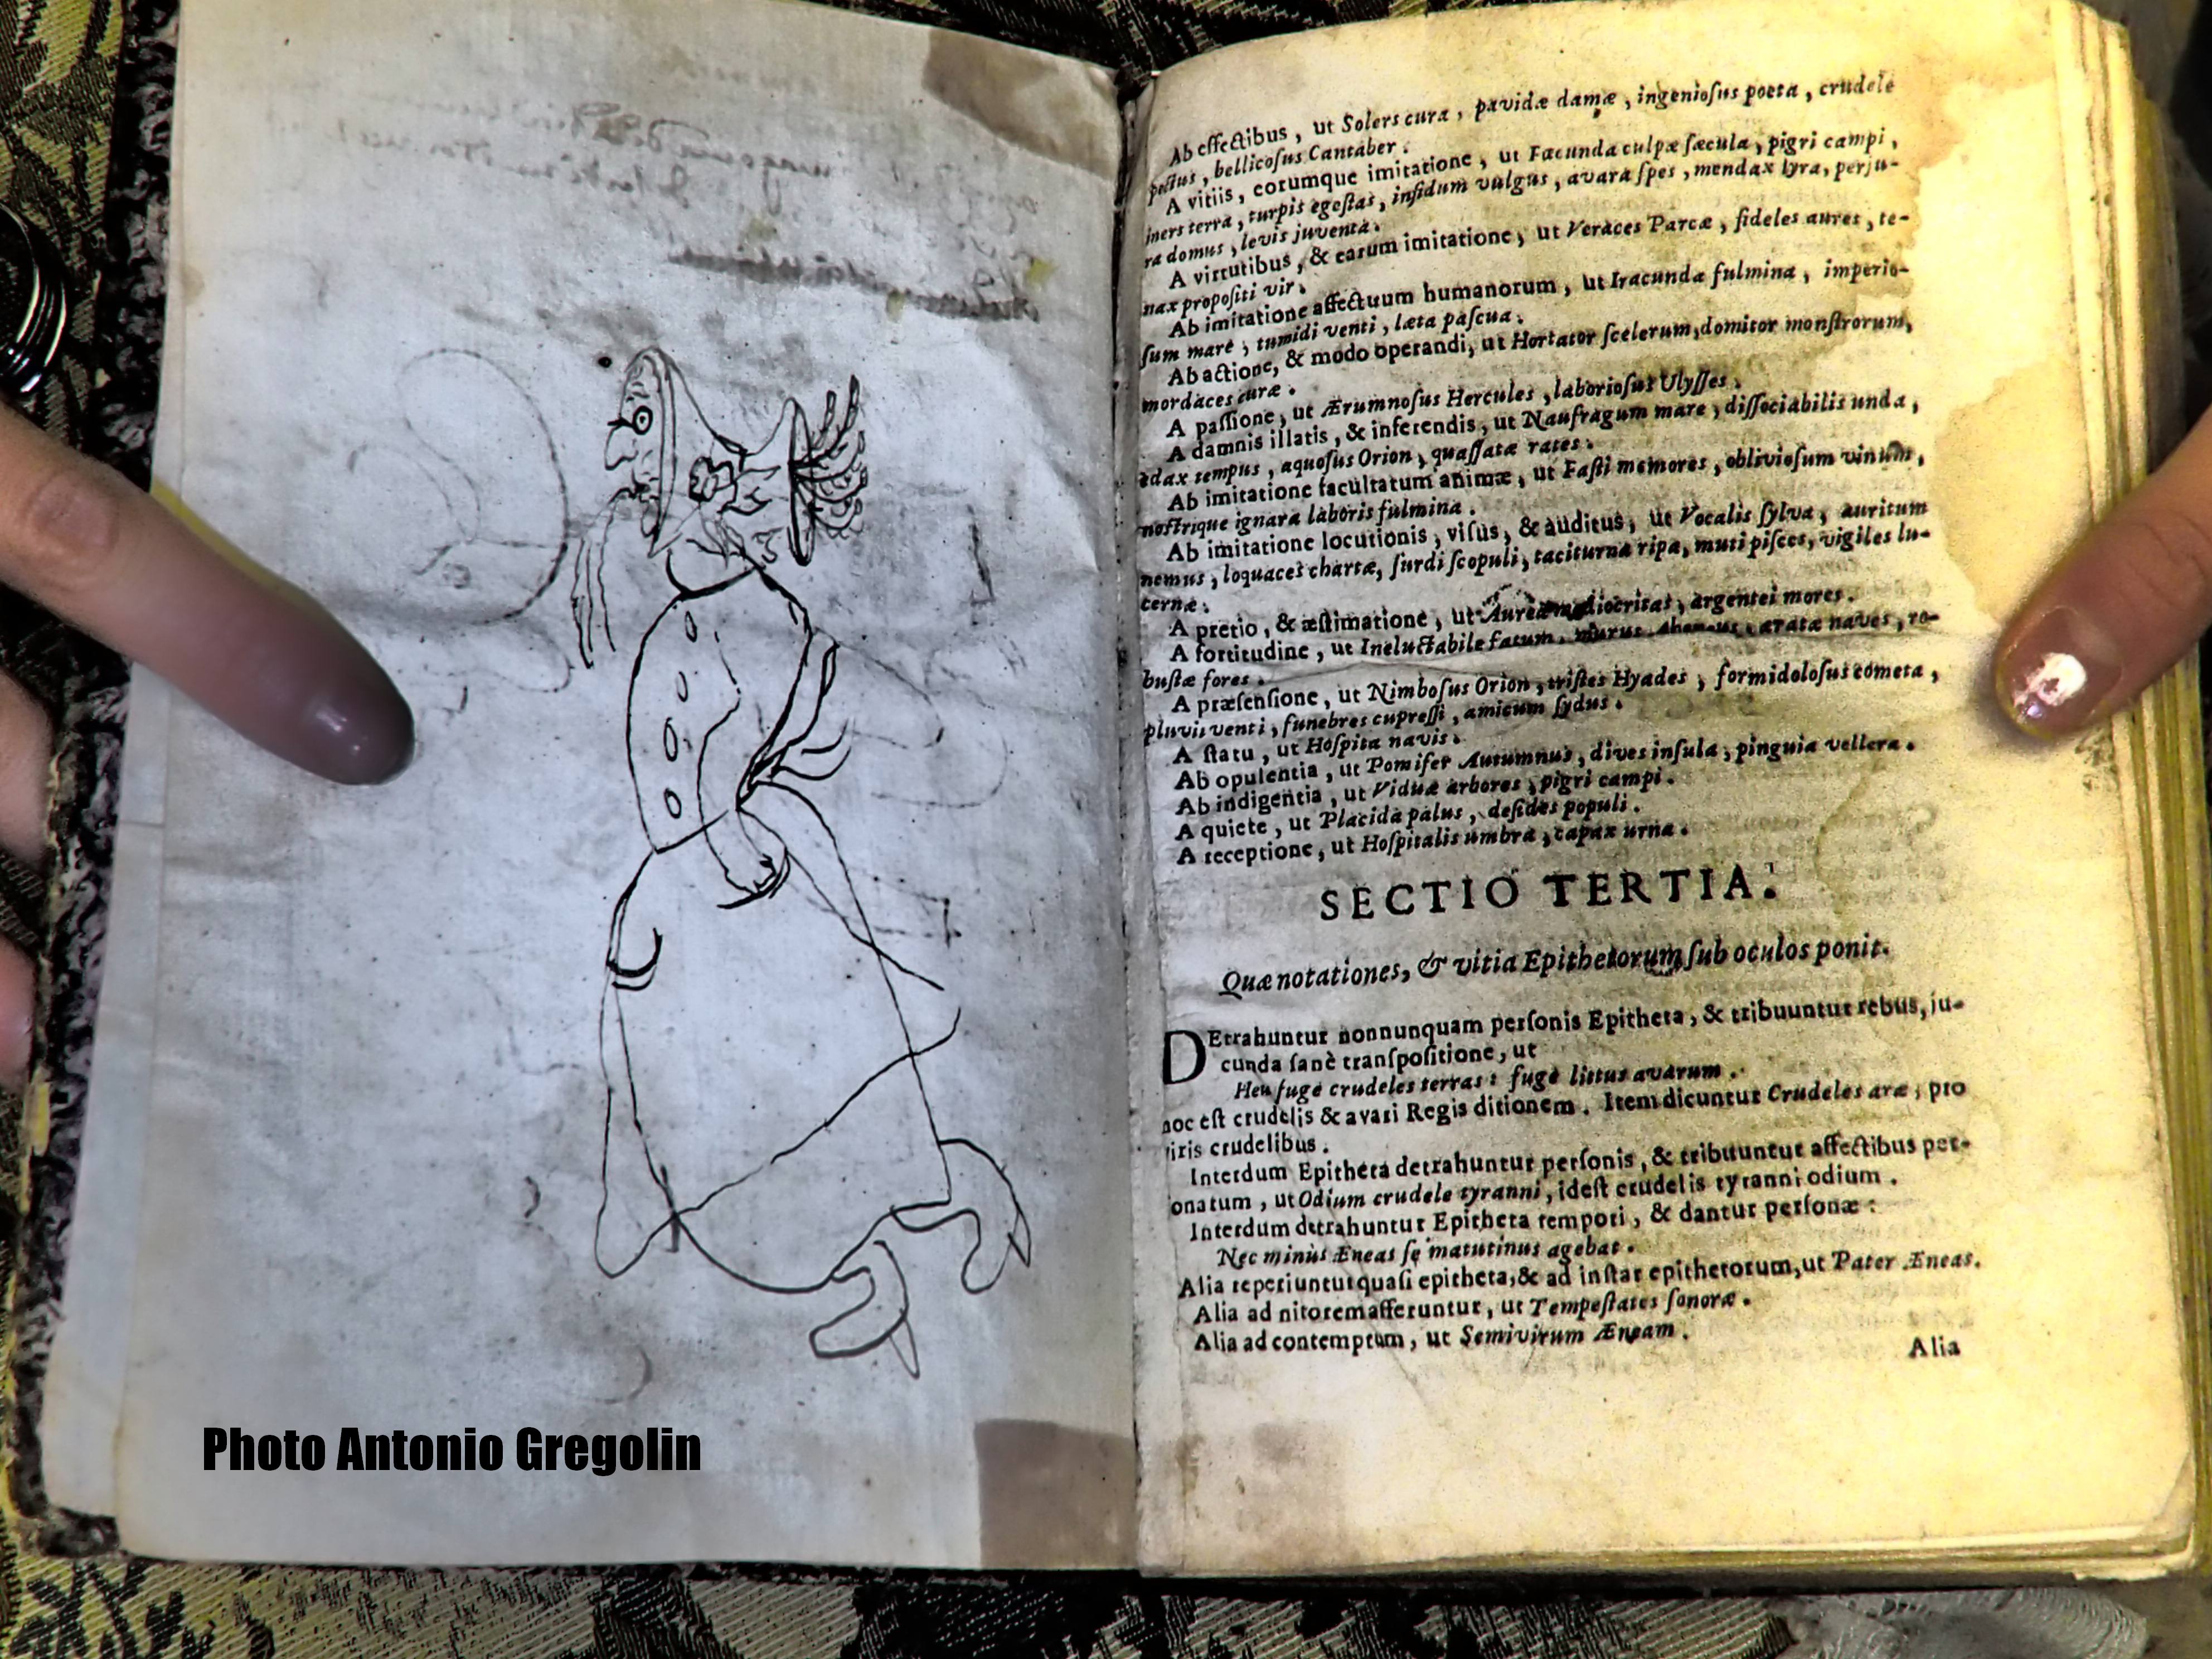 Photo Antonio Gregolin
Ab effectibus, ut Solers cura, pavidæ damæ, ingeniosus poeta, crudele
pectus, bellicosus Cantaber.
A vitiis, eorumque imitatione, ut Fæcunda culpæ sæcula, pigri campi,
iners terra, turpis egestas, infidum vulgus, avara spes, mendax lyra, perju-
ra domus, levis juventa.
A virtutibus, & earum imitatione, ut Veraces Parcæ, fideles aures, te-
nax propositi vir.
Ab imitatione affectuum humanorum, ut Iracunda fulmina, imperio-
sum mare, tumidi venti, læta pascua.
Ab actione, & modo operandi, ut Hortator scelerum, domitor monstrorum,
mordaces curæ.
A passione, ut Ærumnosus Hercules, laboriosus Ulysses.
A damnis illatis, & inferendis, ut Naufragum mare, dissociabilis unda,
edax tempus, aquosus Orion, quassatæ rates.
Ab imitatione facultatum animæ, ut Fasti memores, obliviosum vinum,
nostrique ignara laboris fulmina.
Ab imitatione locutionis, visus, & auditus, ut Vocalis sylva, auritum
nemus, loquaces chartæ, surdi scopuli, taciturna ripa, muti pisces, vigiles lu-
cernæ.
A pretio, & æstimatione, ut Aurea mediocritas, argentei mores.
A fortitudine, ut Ineluctabile fatum, murus aheneus, æratæ naves, ro-
bustæ fores.
A præsensione, ut Nimbosus Orion, tristes Hyades, formidolosus cometa,
pluvii venti, funebres cupressi, amicum sydus.
A statu, ut Hospita navis.
Ab opulentia, ut Pomifer Autumnus, dives insula, pinguia vellera.
Ab indigentia, ut Viduæ arbores, pigri campi.
A quiete, ut Placida palus, desides populi.
A receptione, ut Hospitalis umbra, capax urna.
SECTIO TERTIA.
Quæ notationes, & vitia Epithetorum sub oculos ponit.
DEtrahuntur nonnunquam personis Epitheta, & tribuuntur rebus, ju-
cunda sanè transpositione, ut
Heu fuge crudeles terras: fuge littus avarum.
hoc est crudelis & avari Regis ditionem. Item dicuntur Crudeles aræ, pro
viris crudelibus.
Interdum Epitheta detrahuntur personis, & tribuuntur affectibus per-
sonatum, ut Odium crudele tyranni, idest crudelis tyranni odium.
Interdum detrahuntur Epitheta tempori, & dantur personæ:
Nec minùs Æneas se matutinus agebat.
Alia reperiuntur quasi epitheta, & ad instar epithetorum, ut Pater Æneas.
Alia ad nitorem afferuntur, ut Tempestates sonoræ.
Alia ad contemptum, ut Semivirum Æneam.
Alia